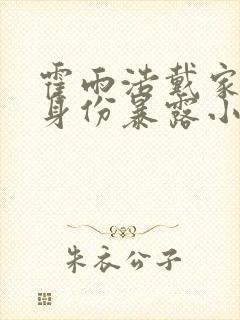 霍雨浩戴家
身份暴露小
朱衣公子